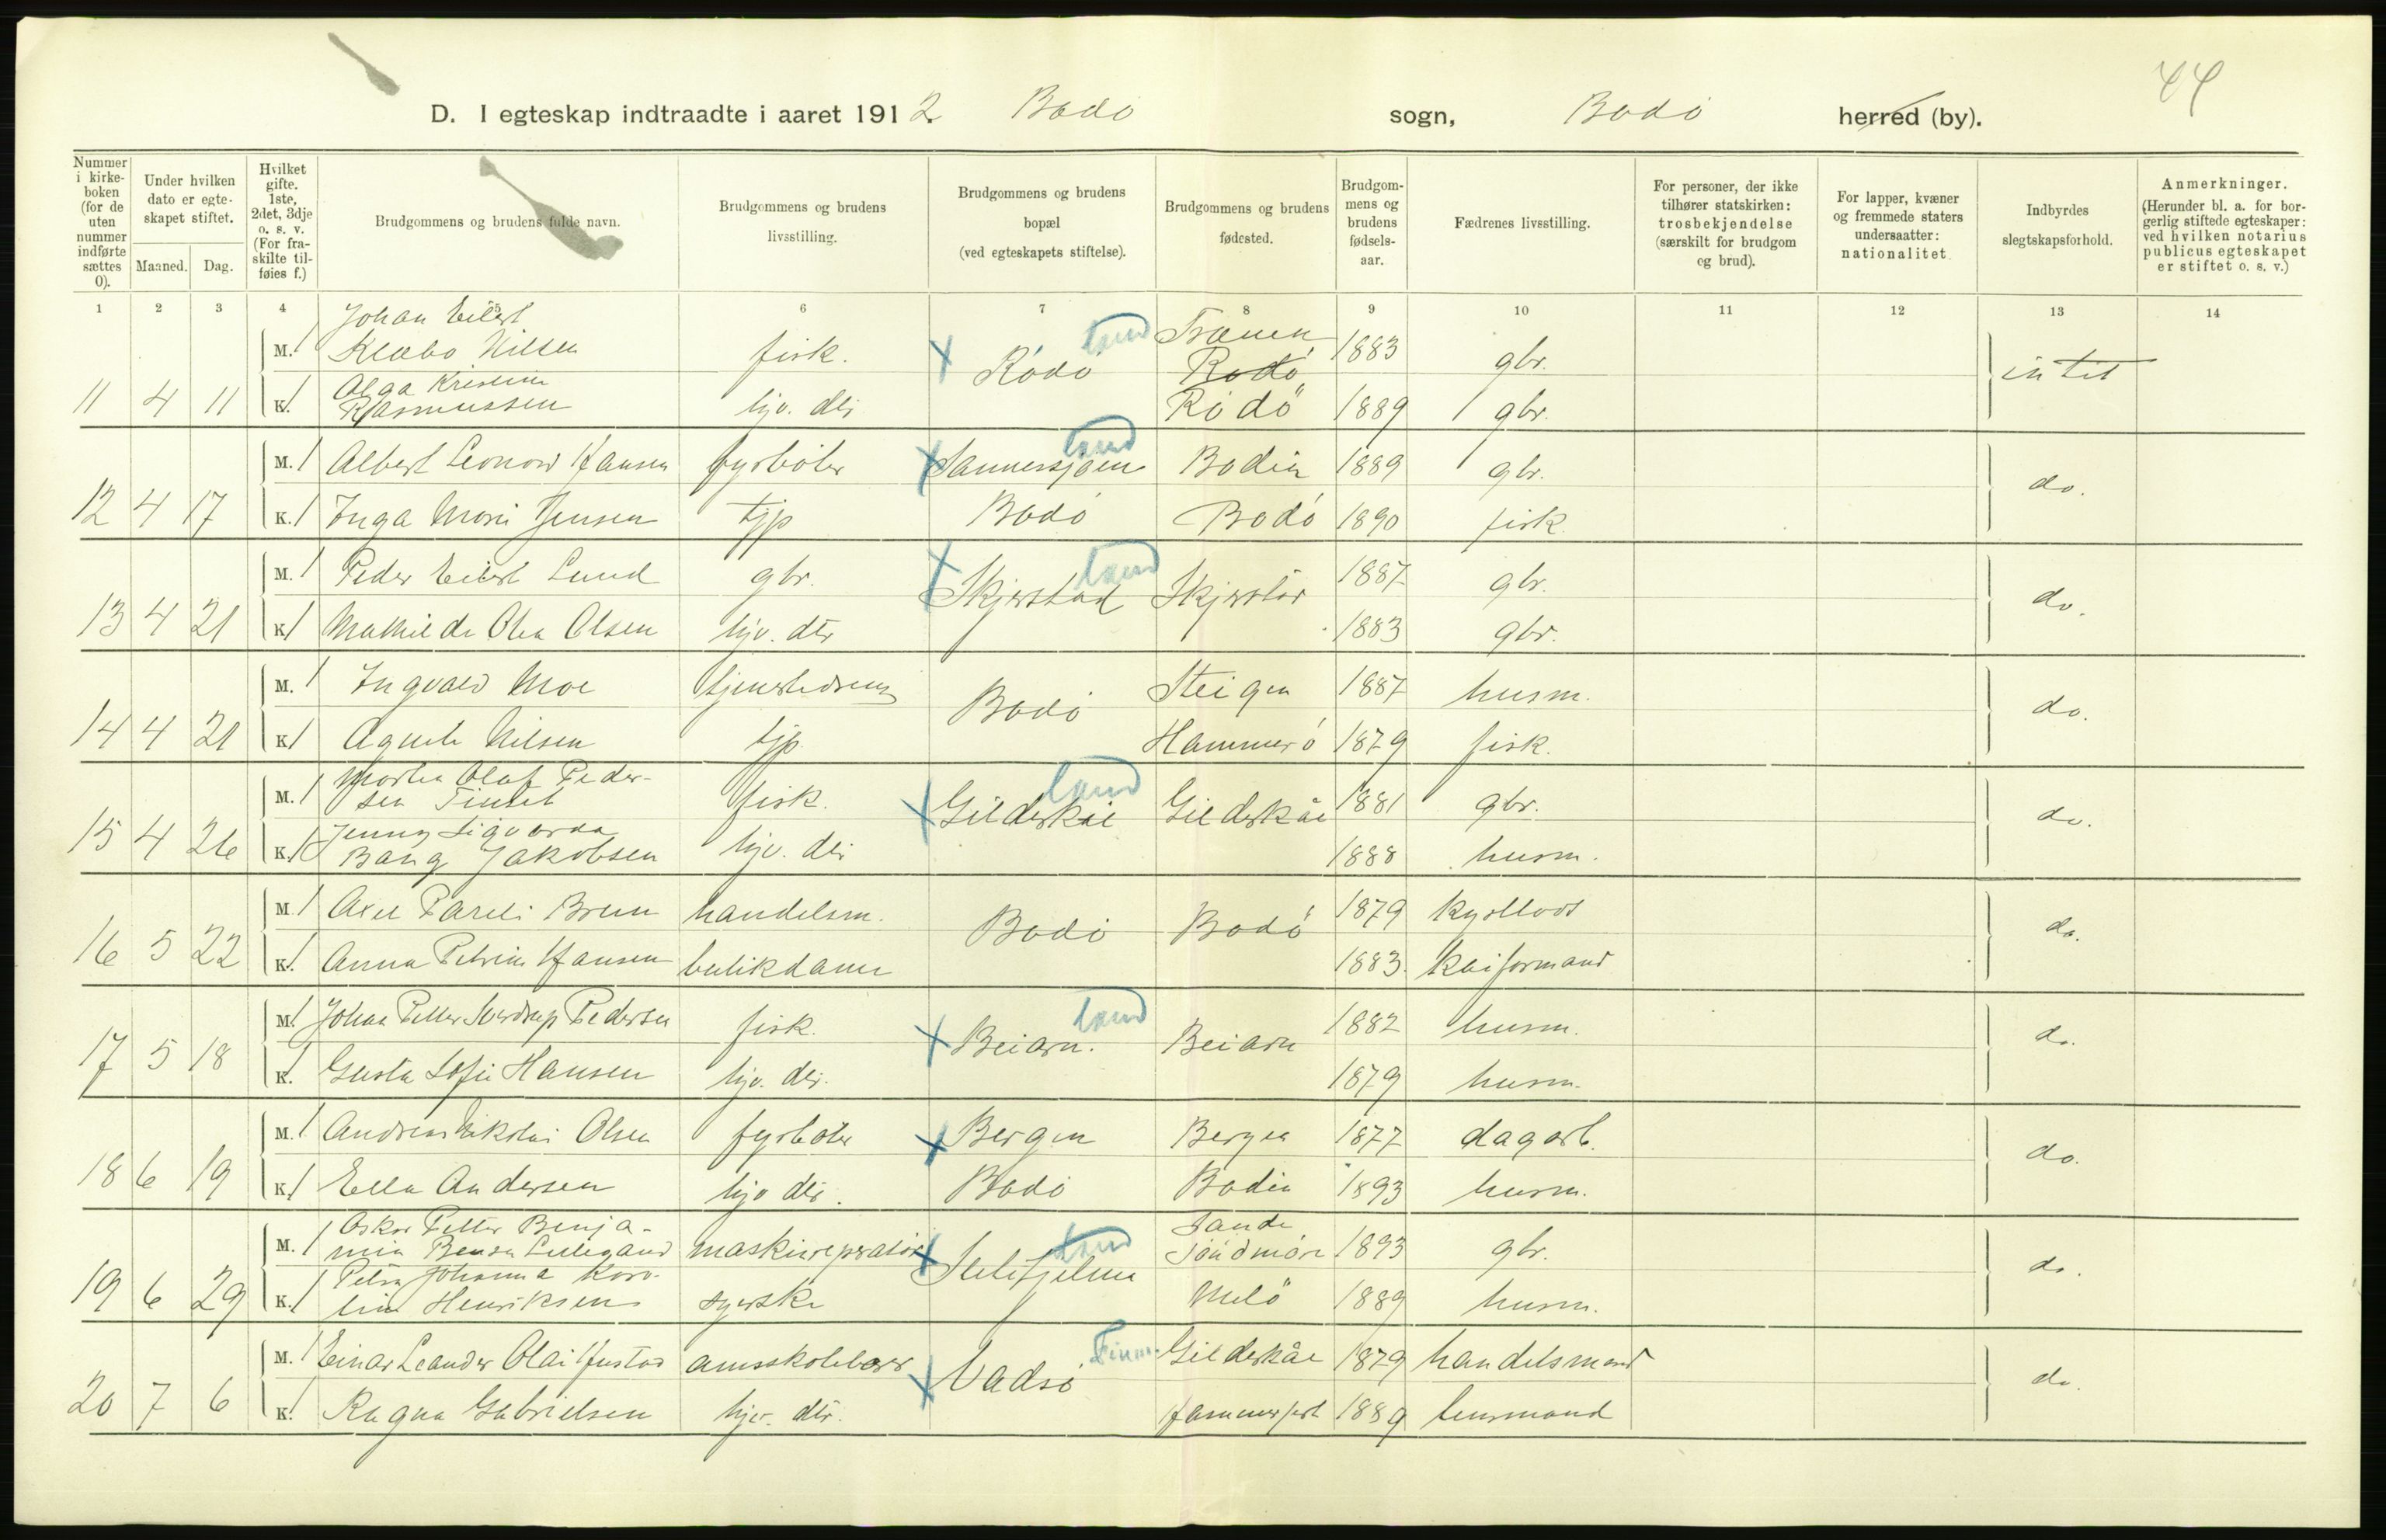 44
D. I egteskap indtraadte i aaret 1912. Bodø sogn, Bodø herred (by).
Nummer i kirkeboken (for de uten nummer indførte sættes 0).
Under hvilken dato er egteskapet stiftet.
Maaned. Dag.
Hvilket gifte. 1ste, 2det, 3dje o. s. v. (For fraskilte tilføies f.)
Brudgommens og brudens fulde navn.
Brudgommens og brudens livsstilling.
Brudgommens og brudens bopæl (ved egteskapets stiftelse).
Brudgommens og brudens fødested.
Brudgommens og brudens fødselsaar.
Fædrenes livsstilling.
For personer, der ikke tilhører statskirken: trosbekjendelse (særskilt for brudgom og brud).
For lapper, kvæner og fremmede staters undersaatter: nationalitet
Indbyrdes slegtskapsforhold.
Anmerkninger. (Herunder bl. a. for borgerlig stiftede egteskaper: ved hvilken notarius publicus egteskapet er stiftet o. s. v.)
1 2 3 4 5 6 7 8 9 10 11 12 13 14
M. 1 Johan Eilert Klæbo Nilsen fisk. Rödö land Trænen Rodö 1883 gbr. intet
11 4 11 K. 1 Olga Kristine Rasmussen hjv. dtr Rödö 1889 gbr.
M. 1 Albert Leonow Hansen fyrböter Sannessjöen land Bodin 1889 gbr. do.
12 4 17 K. 1 Inga Marie Jensen tjp Bodö Bodö 1890 fisk.
M. 1 Peder Eilert Lund gbr. Skjerstad land Skjerstad 1887 gbr. do.
13 4 21 K. 1 Mathilde Olea Olsen hjv. dtr 1883 gbr.
M. 1 Ingvald Moe Bodö Steigen 1887 husm. do.
14 4 21 K. 1 Agnete Nilsen tjp. Hammerö 1879 fisk.
M. 1 Morten Olaf Pedersen fisk. Gildeskål land Gildeskål 1881 gbr. do.
15 4 26 K. 1 Jenny Sigvarda Bang Jakobsen hjv. dtr 1888 husm.
M. 1 Axel Pareli Brun handelsm. Bodö Bodö 1879 kystlods do.
16 5 22 K. 1 Anna Petrine Hansen butikdame 1883. kaiformand
M. 1 Johan Petter Sverdrup Pedersen fisk. Beiarn. land Beiarn 1882 husm. do.
17 5 18 K. 1 Gusta Sofie Hansen hjv. dtr. 1879 husm.
M. 1 Andreas Nikolai Olsen fyrböter Bergen Bergen 1877 dagarb. do.
18 6 19 K. 1 Ella Andersen hjv dtr. Bodö Bodin 1893 husm.
M. 1 Oskar Petter Benjamin Bensen Lillegaard maskinreparatör Sulitjelma land Sande Söndmöre 1893 gbr. do.
19 6 29 K. 1 Petra Johanna Karoline Henriksen syerske Melö 1889 husm.
M. 1 Einar Leander Olai Gustad amsskolelærer Vadsö Finm. Gildeskål 1879 handelsmand do.
20 7 6 K. 1 Ragna Gabrielsen hjv. dtr. Hammerfest 1889 husmand